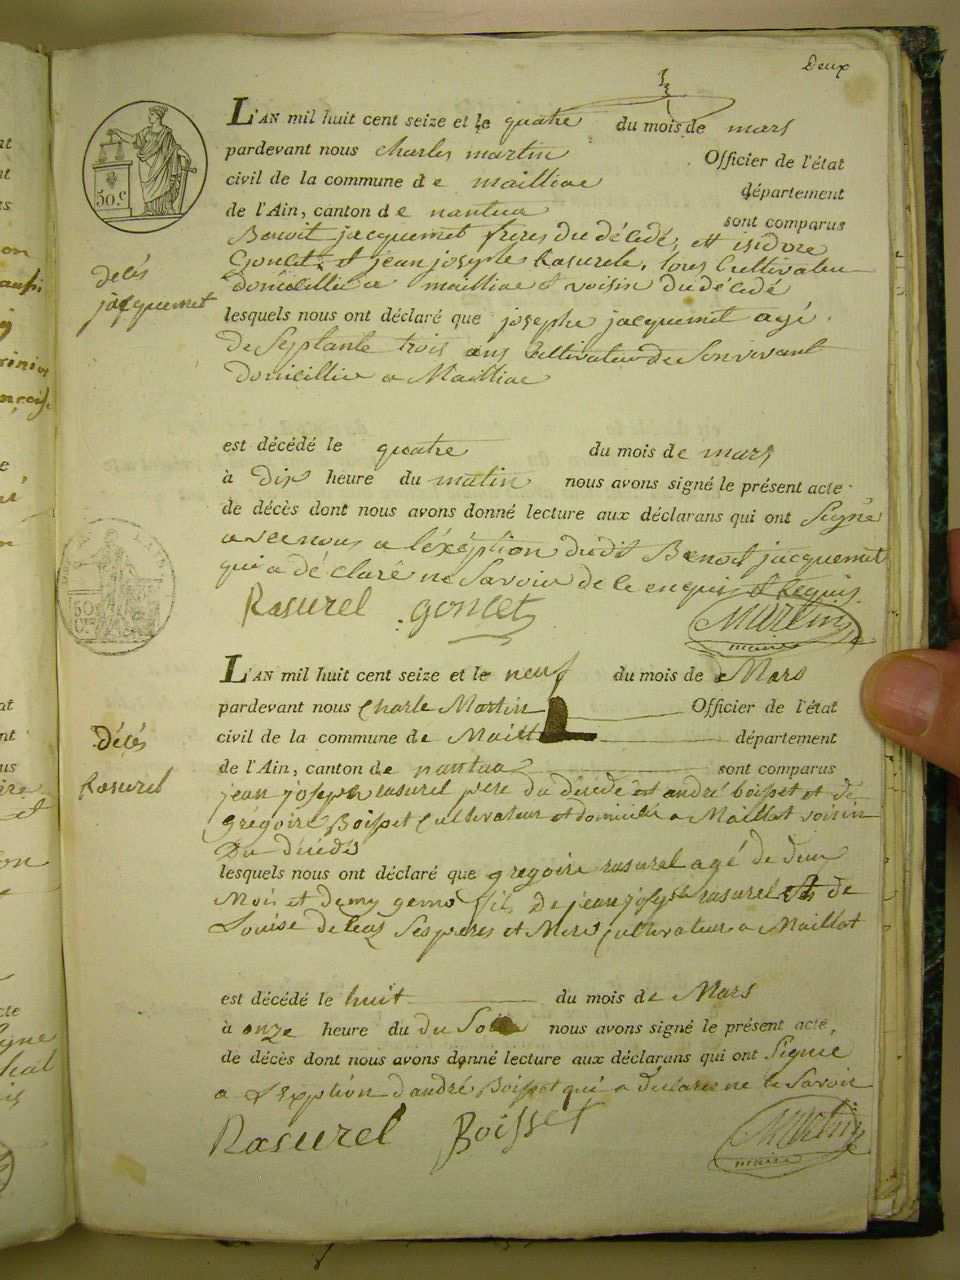 Deux
50.c
L'AN mil huit cent seize et le quatre du mois de mars
pardevant nous charles martin Officier de l'état
civil de la commune de mailliac département
de l'Ain, canton de nantua sont comparus
Benoit jacquemet frères du décédé, et isidore
Goncet, et jean josephe Rasurele, tous Cultivateur
domicillie a mailliac et voisin du décédé
décés
jacquemet
lesquels nous ont déclaré que josephe jacquemet agé
de Septante trois ans Cultivateur de Son vivant
domicillie a Mailliac
est décédé le quatre du mois de mars
à dix heure du matin nous avons signé le présent acte
de décès dont nous avons donné lecture aux déclarans qui ont Signé
avec nous a l'éxéption dudit Benoit jacquemet
qui a déclaré ne Savoir de ce enquis et requis
Rasurel goncet Martin
maire
50
L'AN mil huit cent seize et le neuf du mois de Mars
pardevant nous Charle Martin Officier de l'état
civil de la commune de Maill département
de l'Ain, canton de nantua sont comparus
Décés
Rasurel
jean joseph rasurel pere du décédé et andré boisset et de
grégoire Boisset Cultivateur et domicilié a Maillat voisin
Du décédé
lesquels nous ont déclaré que gregoire rasurel agé de deux
Mois et demy fils De jean joseph rasurel et de
Louise Ses peres et Mere Cultivateur a Maillat
est décédé le huit du mois de Mars
à onze heure du du Soir nous avons signé le présent acte,
de décès dont nous avons donné lecture aux déclarans qui ont Signie
a L'Exption d'andré Boisset qui a déclaré ne le Savoir
Rasurel Boisset Martin
maire